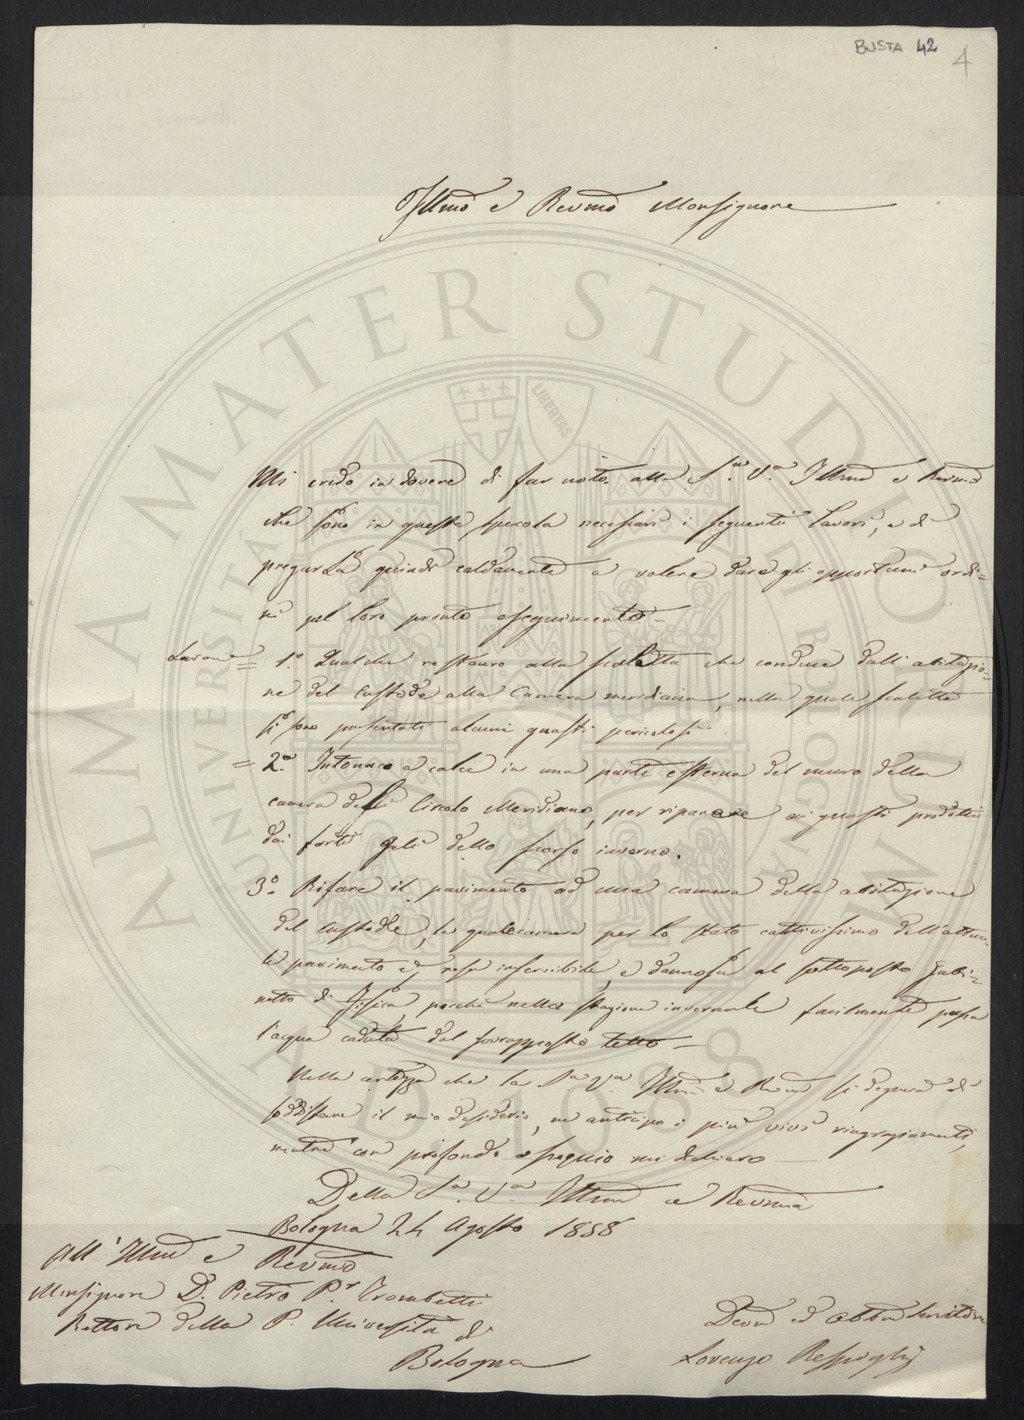 BUSTA 42
4
Illmo e Revmo Monsignore
Mi credo in dovere di far noto alla S.a V.a Illma e Revma
che sono in questa specola necessari i seguenti lavori, e di
pregarLa quindi caldamente a volere dare gli opportuni ordi-
ni pel loro pronto eseguimento -
Lavori = 1.o Qualche restauro alla scaletta che conduce dall'abitazio-
ne del Custode alla Camera meridiana, nella quale scaletta
si sono presentati alcuni guasti pericolosi.
= 2.o Intonaco a calce in una parte esterna del muro della
camera del Circolo Meridiano, per riparare ai guasti prodotti
dai forti geli dello scorso inverno.
3.o Rifare il pavimento ad una camera della abitazione
del Custode, la quale camera per lo stato cattivissimo dell'attua-
le pavimento è resa inservibile, e dannosa al sottoposto Gabi-
netto di Fisica, perchè nella stagione invernale facilmente passa
l'acqua caduta dal sovrapposto tetto -
Nella certezza che la S.a V.a Illma e Revma si degnerà di
soddisfare il mio desiderio, ne anticipo i più vivi ringraziamenti,
mentre con profondo ossequio mi dichiaro
Della S.a V.a Illma e Revma
Bologna 24 Agosto 1858
All' Illmo e Revmo
Monsignore D. Pietro P.r Trombetti
Rettore della P. Università di
Bologna
Devmo ed Obbmo Servitore
Lorenzo Respighi
ALMA MATER STUDIORUM
UNIVERSITÀ DI BOLOGNA
A.D. 1088
LIBERTAS